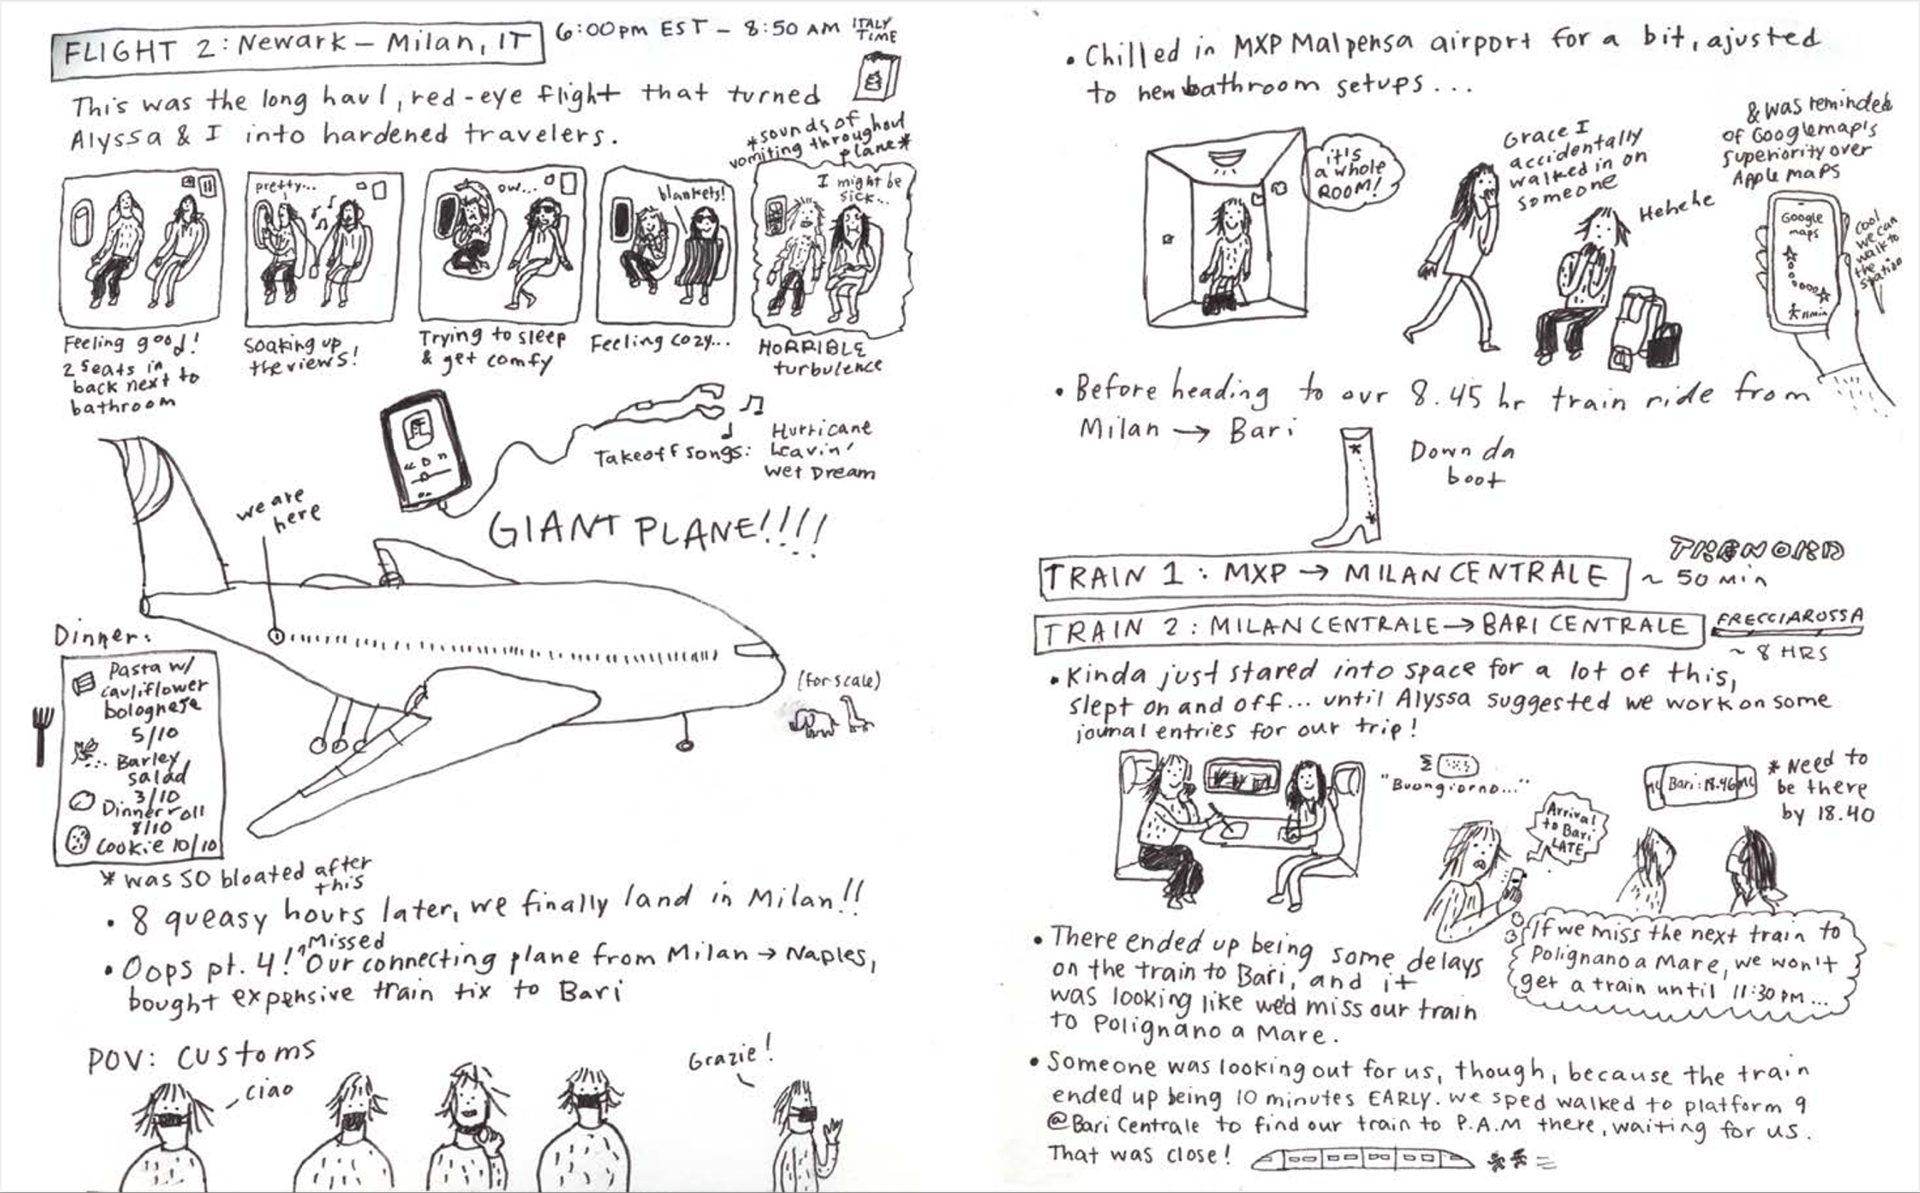 FLIGHT 2: Newark – Milan, IT
6:00pm EST – 8:50 AM ITALY TIME
This was the long haul, red-eye flight that turned
Alyssa & I into hardened travelers.
*sounds of
vomiting throughout
plane*
pretty...
ow...
blankets!
I might be
sick...
Feeling good!
2 seats in
back next to
bathroom
Soaking up
the views!
Trying to sleep
& get comfy
Feeling cozy...
HORRIBLE
turbulence
Takeoff songs:
Hurricane
Leavin'
Wet Dream
GIANT PLANE!!!!
we are
here
(for scale)
Dinner:
Pasta w/
cauliflower
bolognese
5/10
Barley
salad
3/10
Dinner roll
8/10
Cookie 10/10
* was SO bloated after
this
• 8 queasy hours later, we finally land in Milan!!
• Oops pt. 4! Missed Our connecting plane from Milan → Naples,
bought expensive train tix to Bari
POV: customs
ciao
Grazie!
• Chilled in MXP Malpensa airport for a bit, ajusted
to new bathroom setups...
it's
a whole
ROOM!
Grace I
accidentally
walked in on
someone
Hehehe
& was reminded
of Googlemap's
superiority over
Apple maps
Google
maps
11min
Cool
we can
walk to
the
station
• Before heading to our 8.45 hr train ride from
Milan → Bari
Down da
boot
TRAIN 1: MXP → MILAN CENTRALE
TRENORD
~ 50 min
TRAIN 2: MILAN CENTRALE → BARI CENTRALE
FRECCIAROSSA
~ 8 HRS
• Kinda just stared into space for a lot of this,
slept on and off... until Alyssa suggested we work on some
journal entries for our trip!
"Buongiorno..."
Arrival
to Bari
LATE
Bari: 18.46
* Need to
be there
by 18.40
If we miss the next train to
Polignano a Mare, we won't
get a train until 11:30 PM...
• There ended up being some delays
on the train to Bari, and it
was looking like we'd miss our train
to Polignano a Mare.
• Someone was looking out for us, though, because the train
ended up being 10 minutes EARLY. We sped walked to platform 9
@Bari Centrale to find our train to P.A.M there, waiting for us.
That was close!